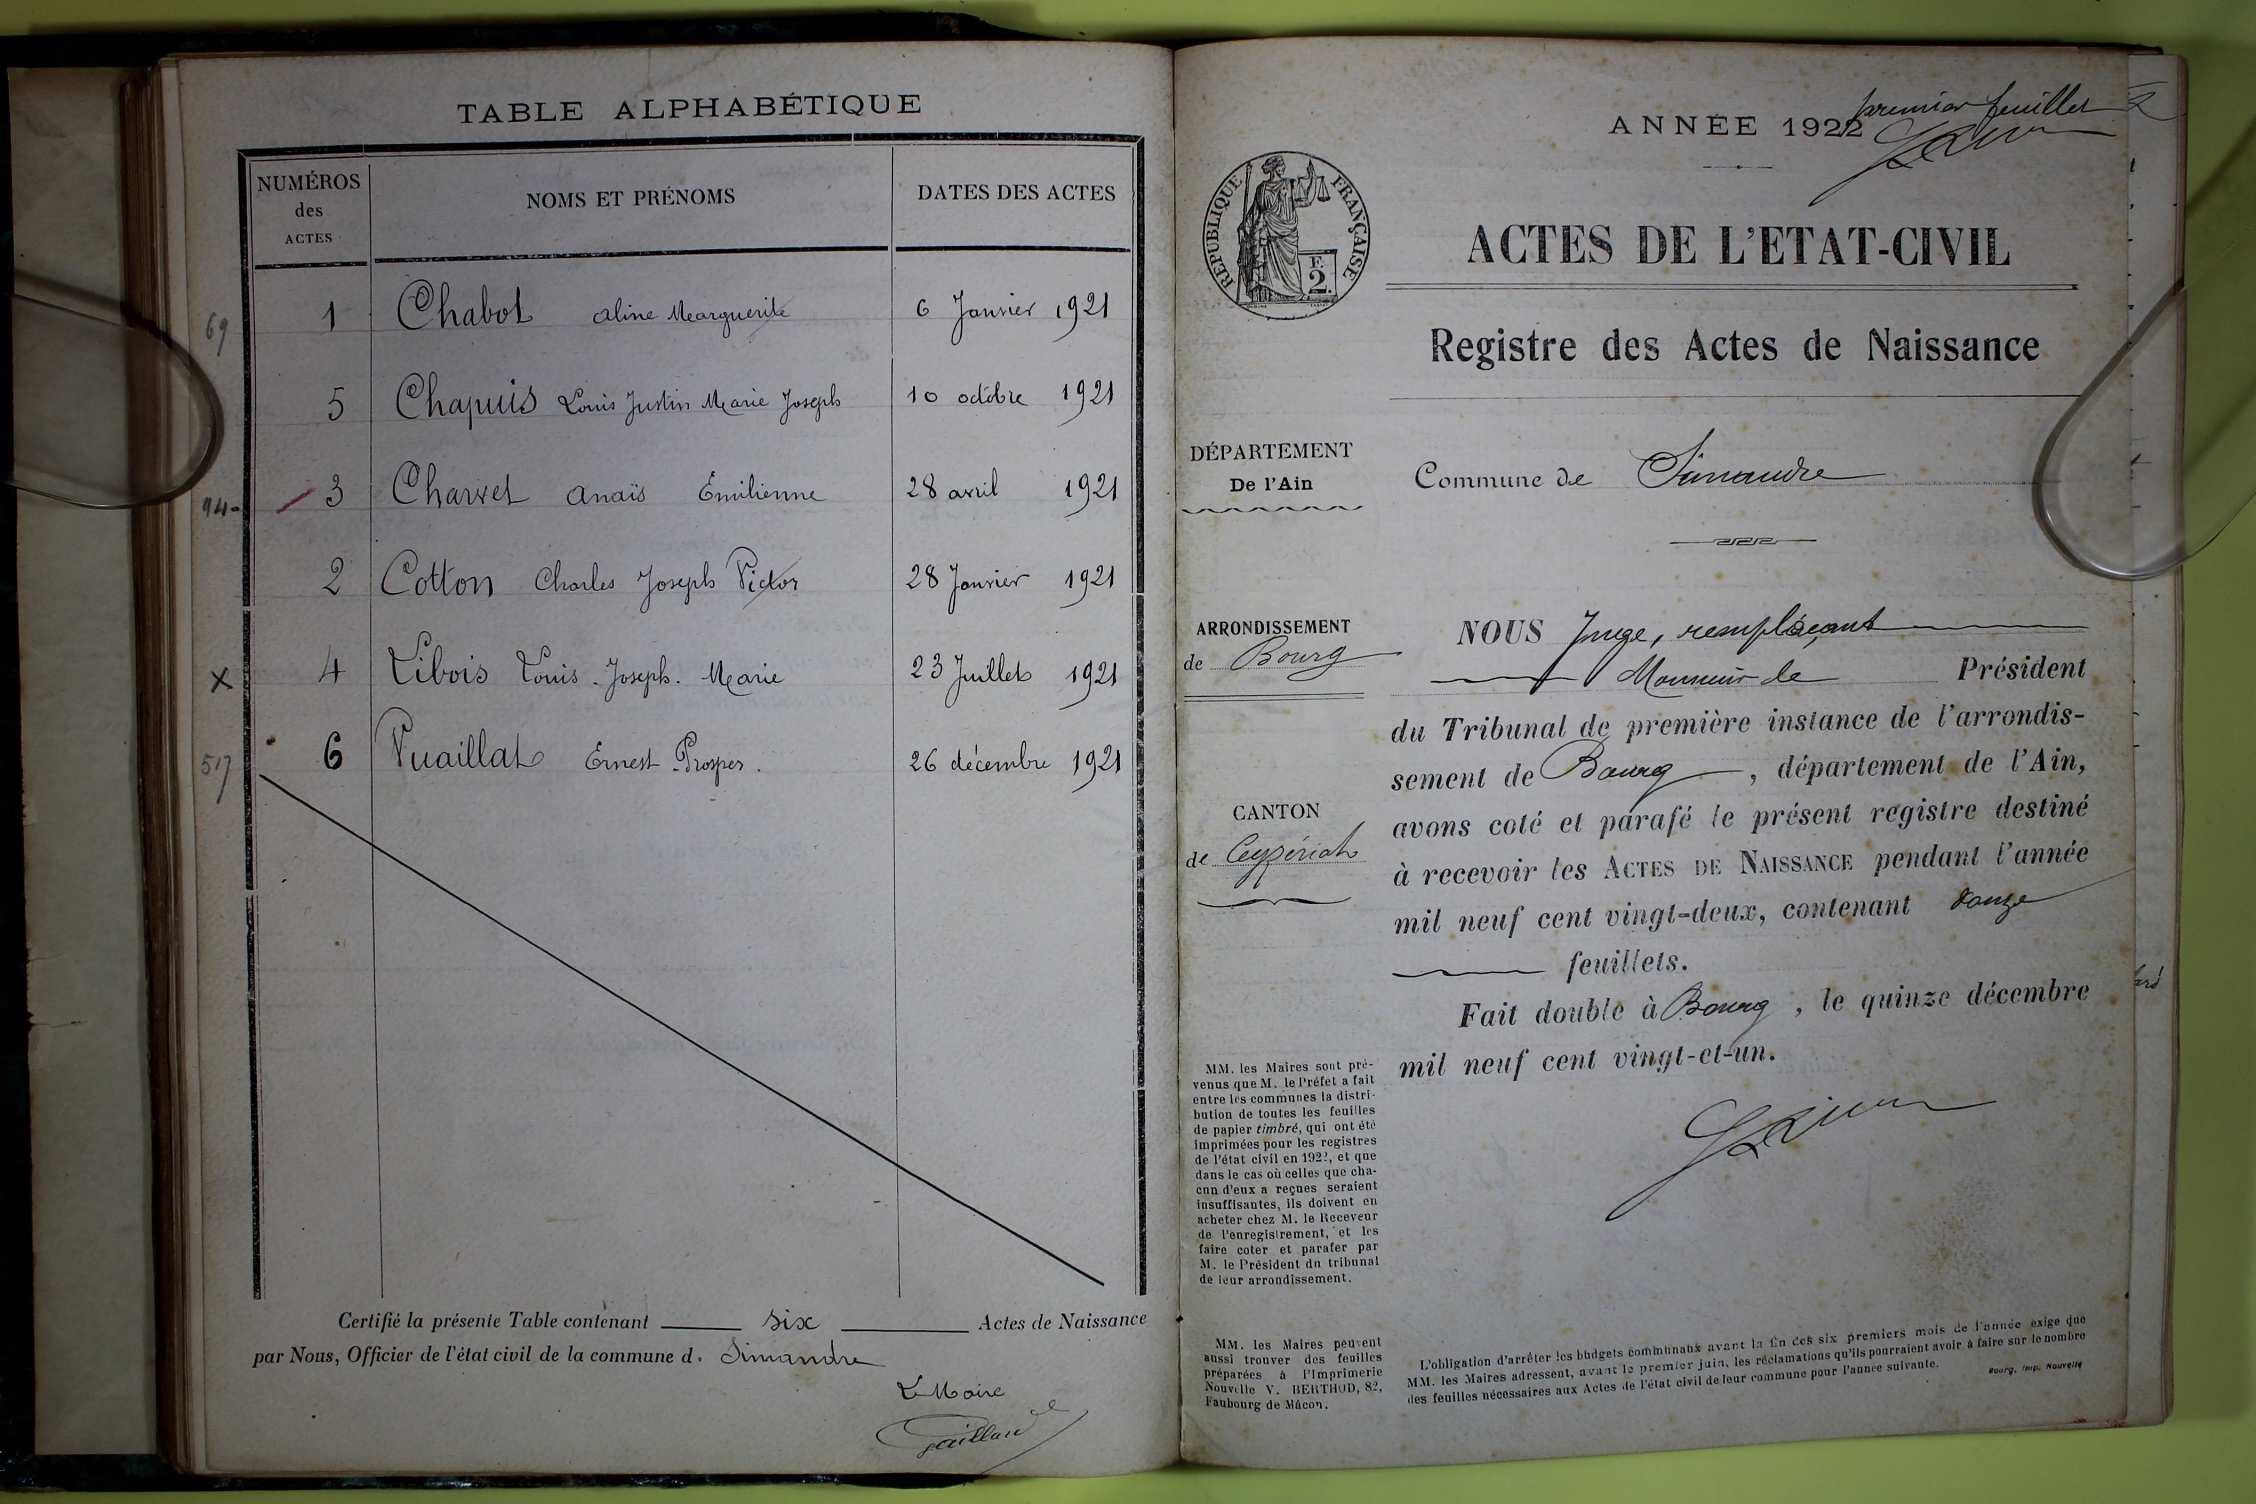 TABLE ALPHABÉTIQUE
NUMÉROS
des
ACTES
NOMS ET PRÉNOMS
DATES DES ACTES
69
1 Chabot Aline Marguerite 6 Janvier 1921
5 Chapuis Louis Justin Marie Joseph 10 octobre 1921
94
3 Charvet Anaïs Emilienne 28 avril 1921
2 Cotton Charles Joseph Victor 28 Janvier 1921
x 4 Tibois Louis Joseph Marie 23 Juillet 1921
6 Vuaillat Ernest Prosper. 26 décembre 1921
Certifié la présente Table contenant six Actes de Naissance
par Nous, Officier de l'état civil de la commune d. Simandre
Le Maire
premier feuillet
ANNÉE 1922
RÉPUBLIQUE FRANÇAISE
F.
2.
ACTES DE L'ETAT-CIVIL
Registre des Actes de Naissance
DÉPARTEMENT
De l'Ain
Commune de Simandre
ARRONDISSEMENT
de Bourg
CANTON
de Ceyzériat
NOUS Juge, remplaçant
Monsieur le Président
du Tribunal de première instance de l'arrondis-
sement de Bourg, département de l'Ain,
avons coté et parafé le présent registre destiné
à recevoir les ACTES DE NAISSANCE pendant l'année
mil neuf cent vingt-deux, contenant douze
feuillets.
Fait double à Bourg, le quinze décembre
mil neuf cent vingt-et-un.
MM. les Maires sont pré-
venus que M. le Préfet a fait
entre les communes la distri-
bution de toutes les feuilles
de papier timbré, qui ont été
imprimées pour les registres
de l'état civil en 1922, et que
dans le cas où celles que cha-
cun d'eux a reçues seraient
insuffisantes, ils doivent en
acheter chez M. le Receveur
de l'enregistrement, et les
faire coter et parafer par
M. le Président du tribunal
de leur arrondissement.
MM. les Maires peuvent
aussi trouver des feuilles
préparées à l'Imprimerie
Nouvelle V. BERTHOD, 82,
Faubourg de Mâcon.
L'obligation d'arrêter les budgets communaux avant la fin des six premiers mois de l'année exige que
MM. les Maires adressent, avant le premier juin, les réclamations qu'ils pourraient avoir à faire sur le nombre
des feuilles nécessaires aux Actes de l'état civil de leur commune pour l'année suivante.
Bourg, Imp. Nouvelle